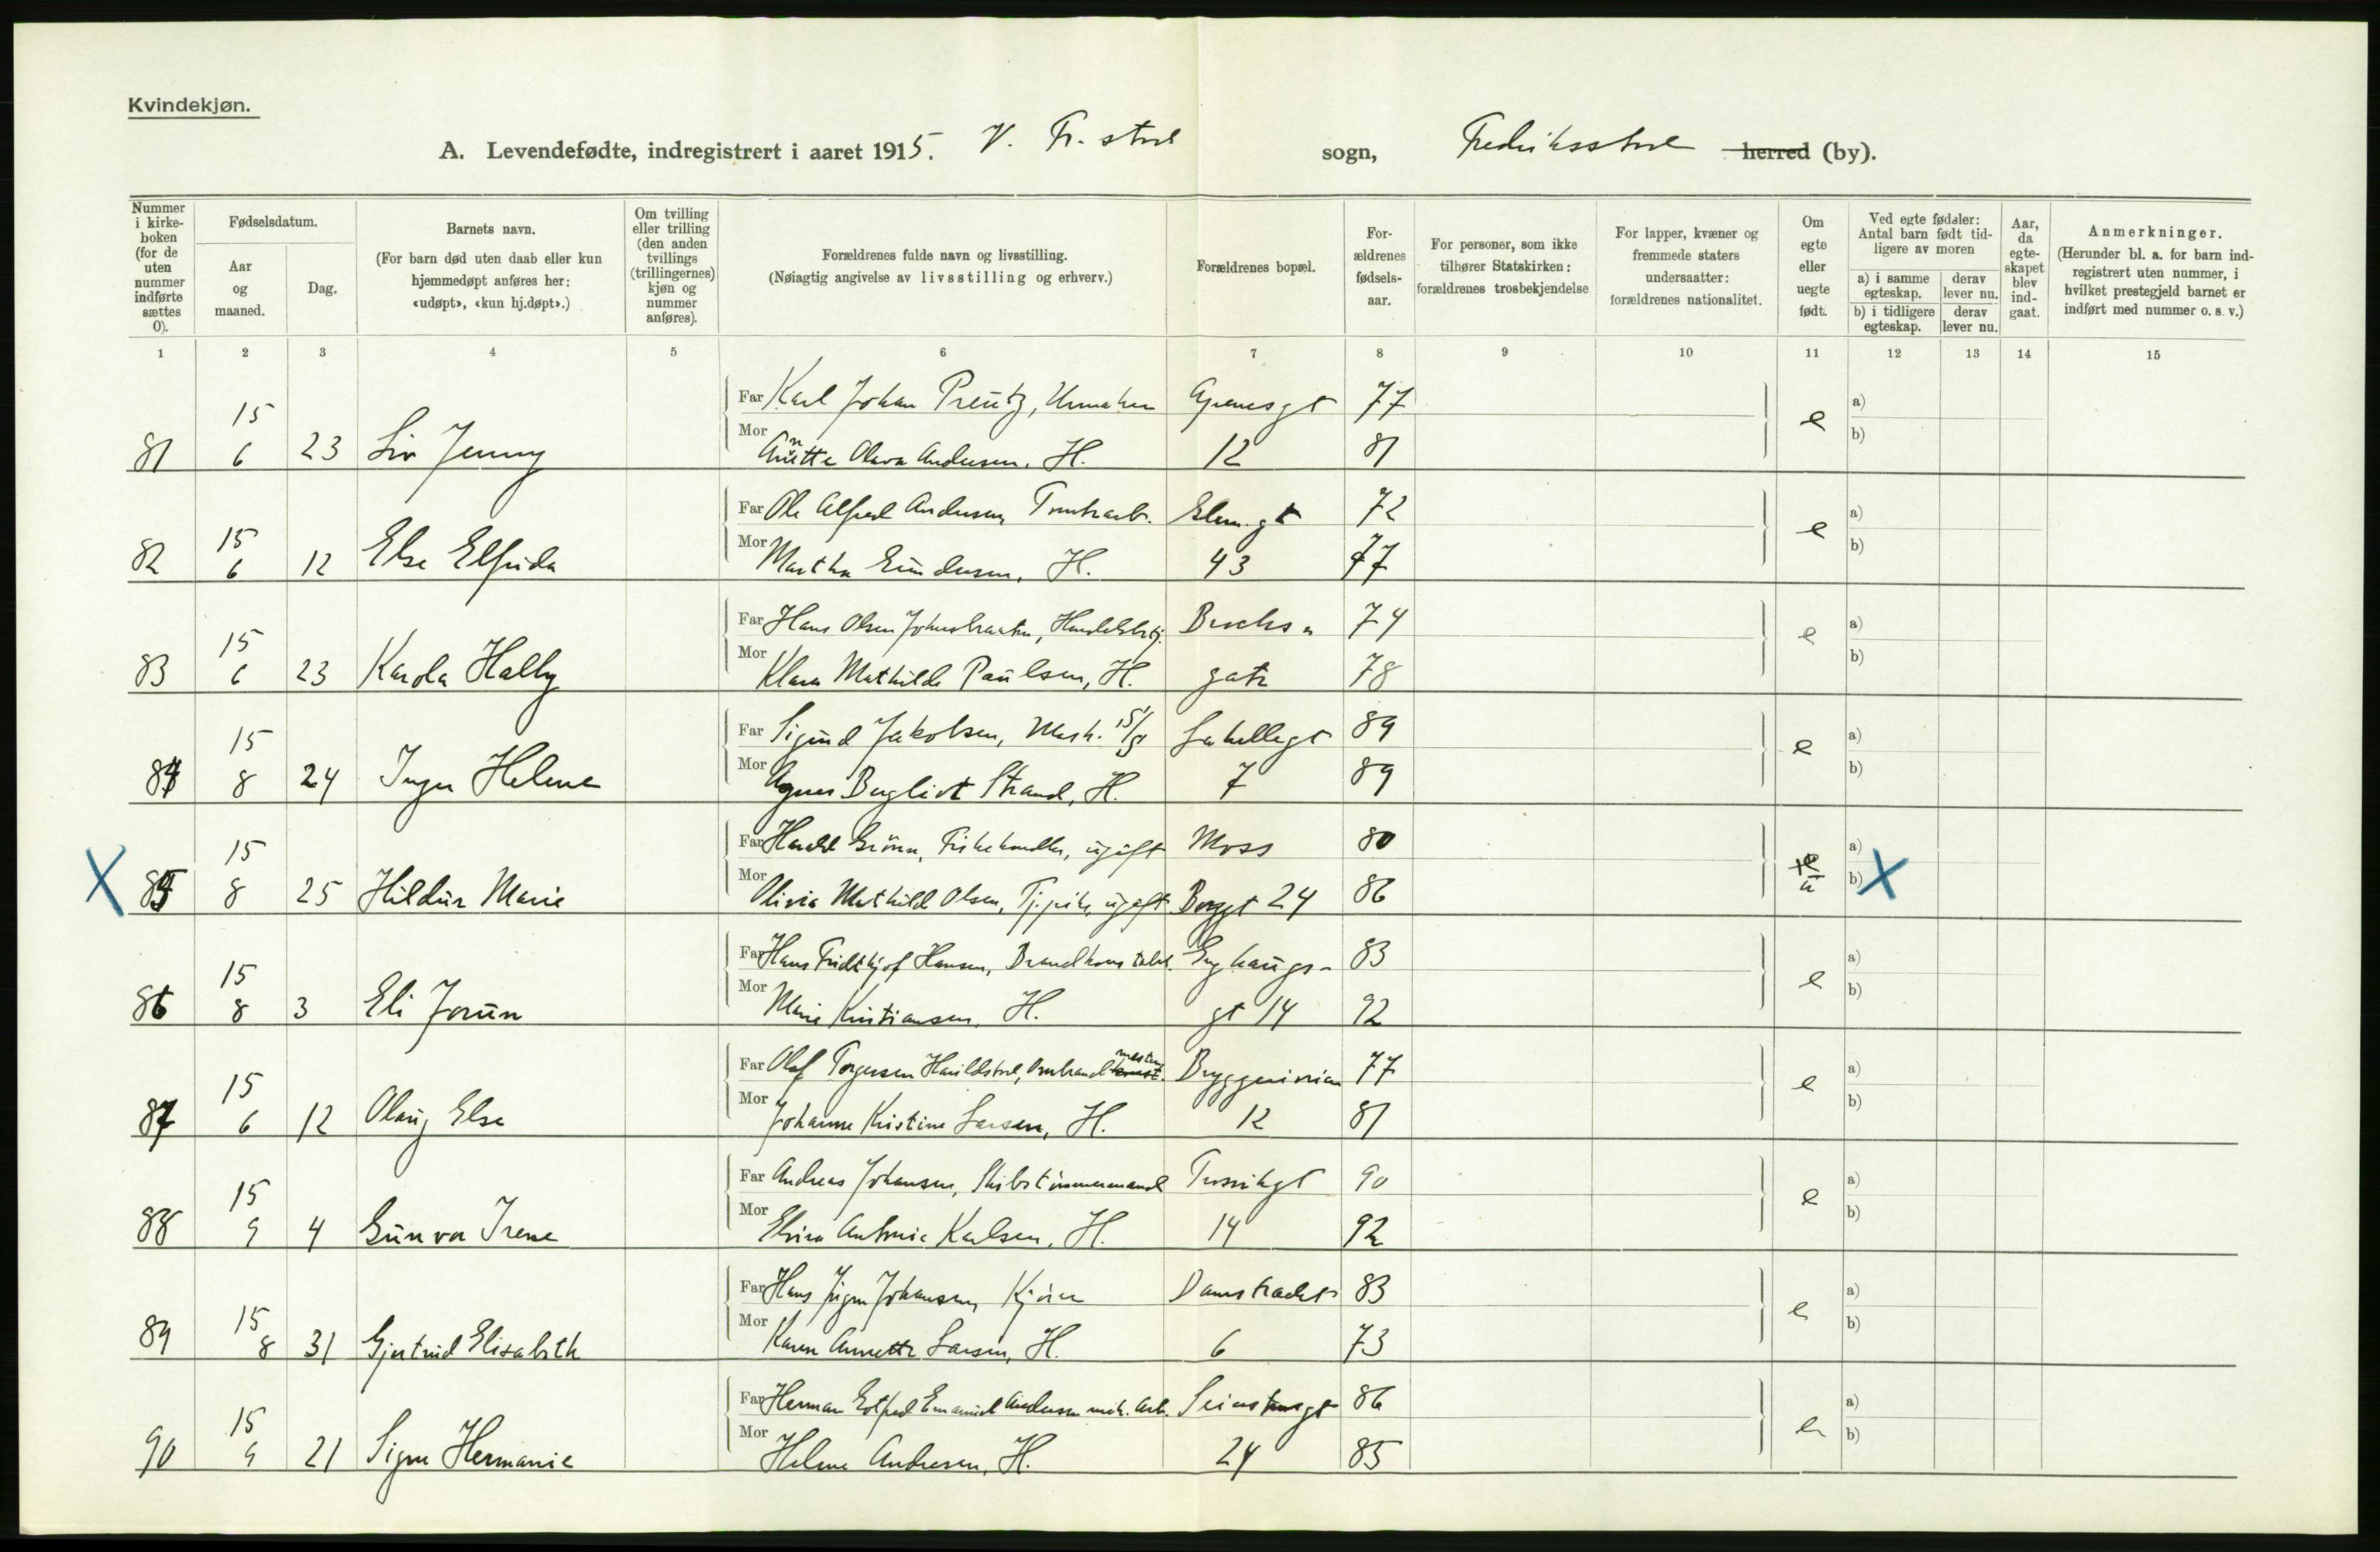 Kvindekjøn.
A. Levendefødte, indregistrert i aaret 1915. V. Fr. stad sogn, Fredriksstad herred (by).
Nummer i kirkeboken (for de uten nummer indførte sættes 0).
Fødselsdatum.
Aar og maaned.
Dag.
Barnets navn.
(For barn død uten daab eller kun hjemmedøpt anføres her: «udøpt», «kun hj.døpt».)
Om tvilling eller trilling (den anden tvillings (trillingernes) kjøn og nummer anføres).
Forældrenes fulde navn og livsstilling.
(Nøiagtig angivelse av livsstilling og erhverv.)
Forældrenes bopæl.
Forældrenes fødselsaar.
For personer, som ikke tilhører Statskirken: forældrenes trosbekjendelse
For lapper, kvæner og fremmede staters undersaatter: forældrenes nationalitet.
Om egte eller uegte født.
Ved egte fødsler: Antal barn født tidligere av moren
a) i samme egteskap. derav lever nu.
b) i tidligere egteskap. derav lever nu.
Aar, da egteskapet blev indgaat.
Anmerkninger.
(Herunder bl. a. for barn indregistrert uten nummer, i hvilket prestegjeld barnet er indført med nummer o. s. v.)
1 2 3 4 5 6 7 8 9 10 11 12 13 14 15
15 Far Karl Johan Preutz, Urmaker 77 e a)
81 6 23 Liv Jenny Mor Anette Olava Andersen, H. 12 81 b)
15 Far Ole Alfred Andersen, Tomtearb. gt 72 e a)
82 6 12 Else Elfrida Mor Martha Gundersen, H. 43 77 b)
15 Far Hans Olsen 74 e a)
83 6 23 Karola Hally Mor Klara Mathilde Paulsen, H. gate 78 b)
15 Far Sigurd Jakobsen, Mask. 89 e a)
84 8 24 Inger Helene Mor Agnes Bergliot Strand, H. 7 89 b)
15 Far Harald Grönn, Fiskehandler, ugift Moss 80 e a)
X 85 8 25 Hildur Marie Mor Olivia Mathild Olsen, Tj.pike, ugift Borggt 24 86 u b) X
15 Far Hans Fridthjof Hansen, Brandkonstabel. Enghaugs- 83 e a)
86 8 3 Eli Jorun Mor Marie Kristiansen, H. gt 14 92 b)
15 Far Olaf Torgersen 77 e a)
87 6 12 Olaug Else Mor Johanne Kristine Larsen, H. 12 81 b)
15 Far Andreas Johansen, Skibstømmermand Trosvikgt 90 e a)
88 9 4 Gunvor Irene Mor Elvira Antonie Karlsen, H. 14 92 b)
15 Far Hans Jørgen Johansen, Kjörer Damstrædet 83 e a)
89 8 31 Gjertrud Elisabeth Mor Karen Annette Larsen, H. 6 73 b)
15 Far Herman Emanuel Andersen mek. arb. 86 e a)
90 9 21 Signe Hermanie Mor Helene Andresen, H. 24 85 b)